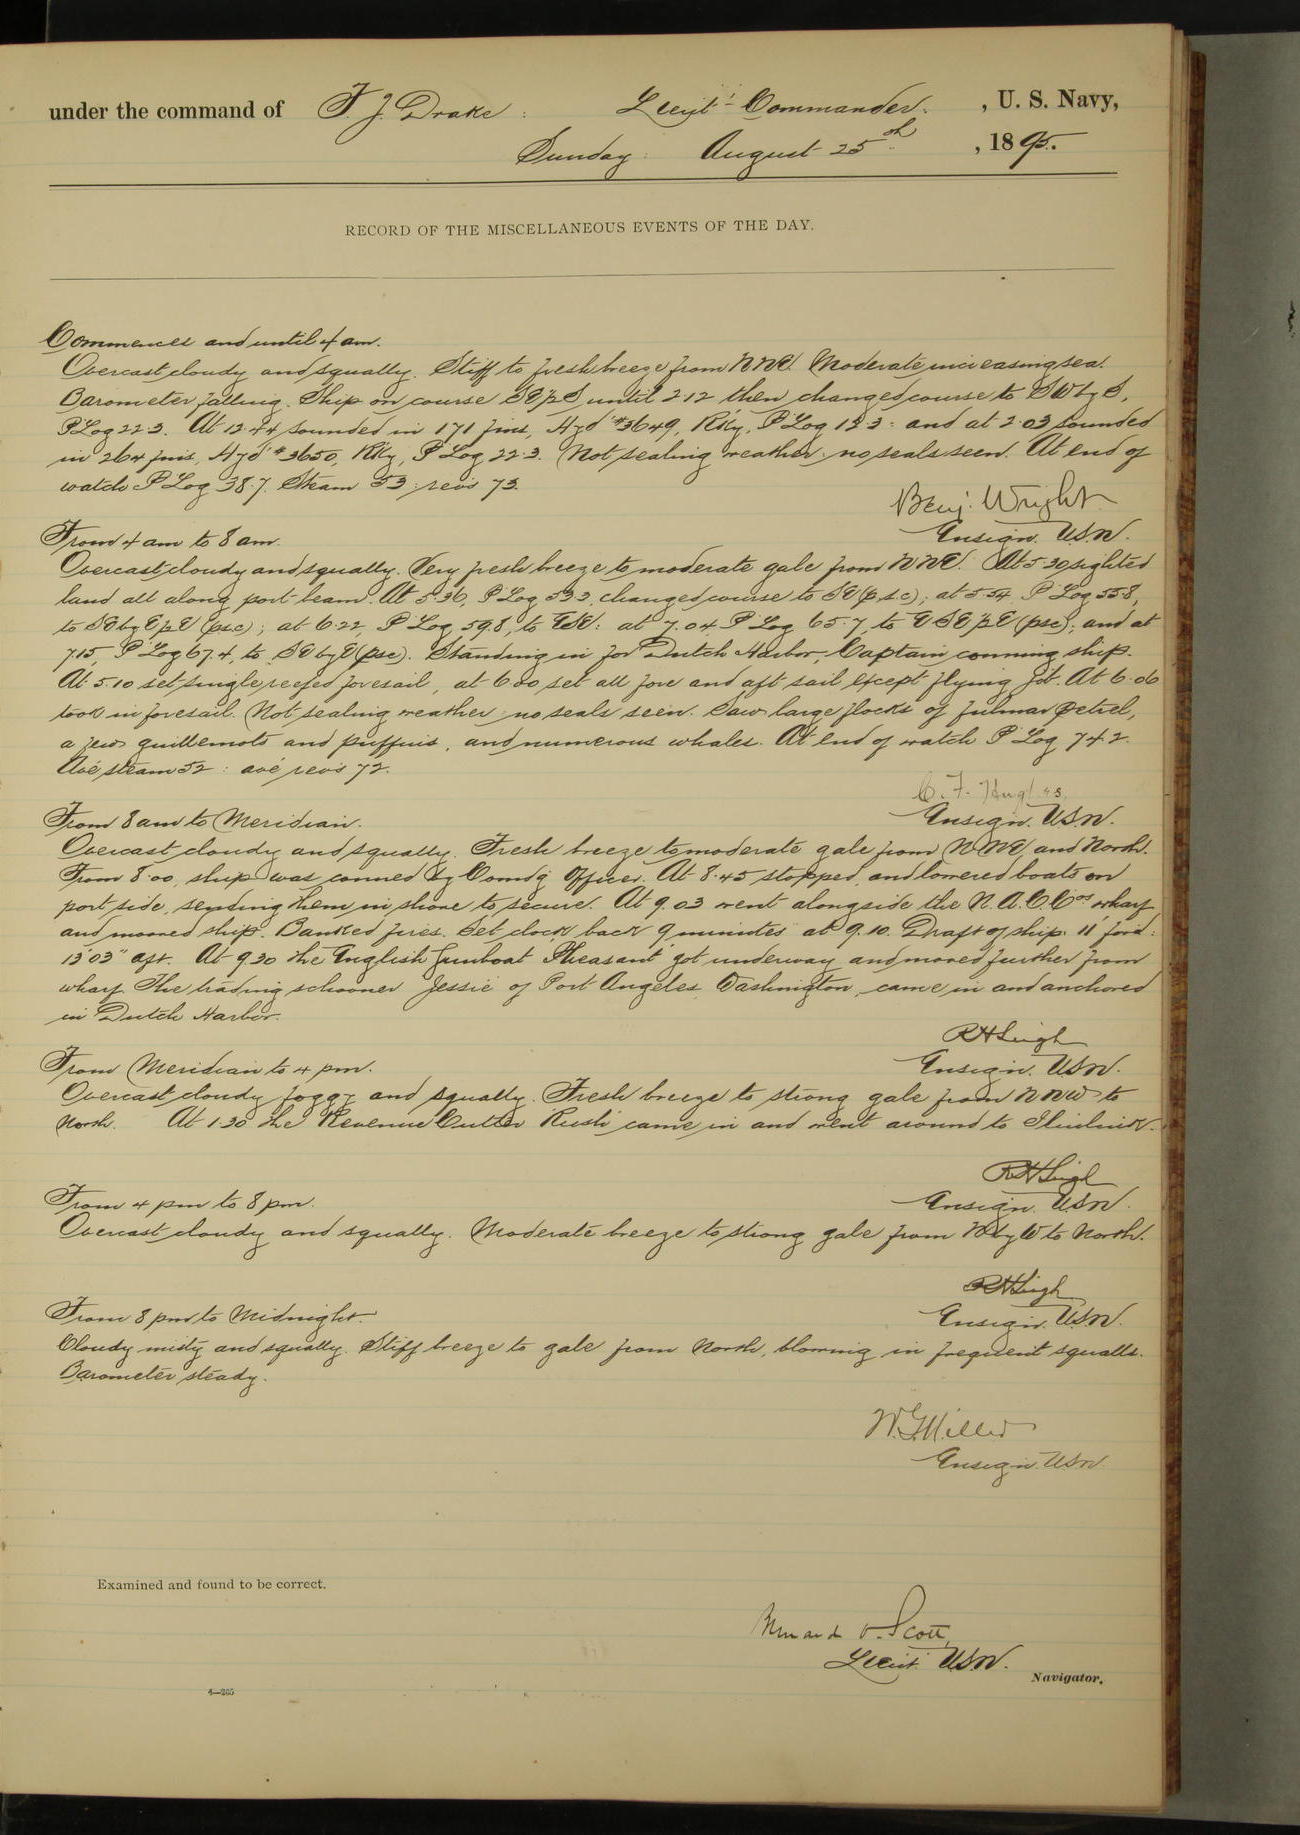 under the command of F. J. Drake. Lieut- Commander. , U. S. Navy,
Sunday August 25th , 1895.
RECORD OF THE MISCELLANEOUS EVENTS OF THE DAY.
Commences and until 4 am.
Overcast cloudy and squally. Stiff to fresh breeze from NNE. Moderate increasing sea.
Barometer falling. Ship on course until 2.12 then changed course to SW by S,
P Log 22.3. At 12.44 sounded in 171 fms, Hyd #3649, Rky, P Log 12.3: and at 2.03 sounded
in 264 fms, Hyd #3650, Rky, P Log 22.3. Not sealing weather: no seals seen. At end of
watch P Log 38.7. Steam 53: revs 73.
Benj. Wright
Ensign. U.S.N.
From 4 am to 8 am.
Overcast cloudy and squally. Very fresh breeze to moderate gale from NNE. At 5.30 sighted
land all along port beam. At 5.36, P Log 53.3, changed course to SE (psc); at 5.54, P Log 55.8,
to SE by E½E (psc); at 6.22, P Log 59.8, to ESE: at 7.04 P Log 65.7, to ESE½E (psc); and at
7.15, P Log 67.4, to SE by E (psc). Standing in for Dutch Harbor, Captain conning ship.
At 5.10 set single reefed foresail, at 6.00 set all fore and aft sail except flying jib. At 6.06
took in foresail. Not sealing weather: no seals seen. Saw large flocks of fulmar petrel,
a few guillemots and puffins, and numerous whales. At end of watch P Log 74.2.
Ave steam 52: ave revs 72.
C. F. Hughes,
Ensign. U.S.N.
From 8 am to Meridian.
Overcast cloudy and squally. Fresh breeze to moderate gale from NNE and North.
From 8.00, ship was conned by Comd'g Officer. At 8.45 stopped, and lowered boats on
port side, sending them in shore to secure. At 9.03 went alongside the N.A.C.Cos wharf
and moored ship. Banked fires. Set clock back 9 minutes at 9.10. Draft of ship 11' ford:
13'03" aft. At 9.30 the English Gunboat "Pheasant" got underway and moved further from
wharf. The trading schooner Jessie of Port Angeles, Washington, came in and anchored
in Dutch Harbor.
R H Leigh
Ensign. U.S.N.
From Meridian to 4 pm.
Overcast cloudy foggy and squally. Fresh breeze to strong gale from NNW to
North. At 1.30 the Revenue Cutter Rush came in and went around to Iliuliuk.
R H Leigh
Ensign. U.S.N.
From 4 pm to 8 pm.
Overcast cloudy and squally. Moderate breeze to strong gale from N by W to North.
R H Leigh
Ensign. U.S.N.
From 8 pm to Midnight.
Cloudy misty and squally. Stiff breeze to gale from North, blowing in frequent squalls.
Barometer steady.
W. G. Miller
Ensign. U.S.N.
Examined and found to be correct.
Bernard O. Scott,
Lieut. U.S.N.
Navigator.
4—265